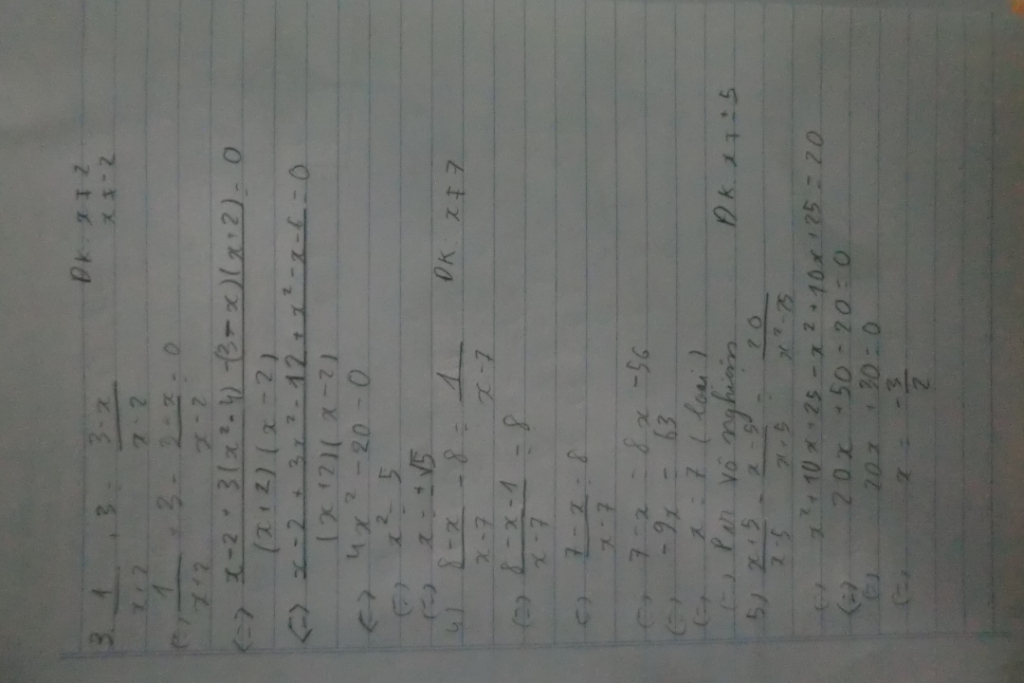 3. 1/(x+2) + 3 = (3-x)/(x-2) Đk: x ≠ 2
x ≠ -2
(=) 1/(x+2) + 3 - (3-x)/(x-2) = 0
(=) (x-2+3(x²-4)-(3-x)(x+2))/((x+2)(x-2)) = 0
(=) (x-2+3x²-12+x²-x-6)/((x+2)(x-2)) = 0
(=) 4x²-20=0
(=) x²=5
(=) x=±√5
4) (8-x)/(x-7) - 8 = 1/(x-7) Đk x ≠ 7
(=) (8-x-1)/(x-7) = 8
(=) (7-x)/(x-7) = 8
(=) 7-x = 8x-56
(=) -9x = - 63
(=) x = 7 (loại)
(=) Ptr vô nghiệm
5) (x+5)/(x-5) - (x-5)/(x+5) = 20/(x²-25) Đk x ≠ ±5
(=) x²+10x+25-x²+10x+25=20
(=) 20x+50-20=0
(=) 20x+30=0
(=) x = -3/2